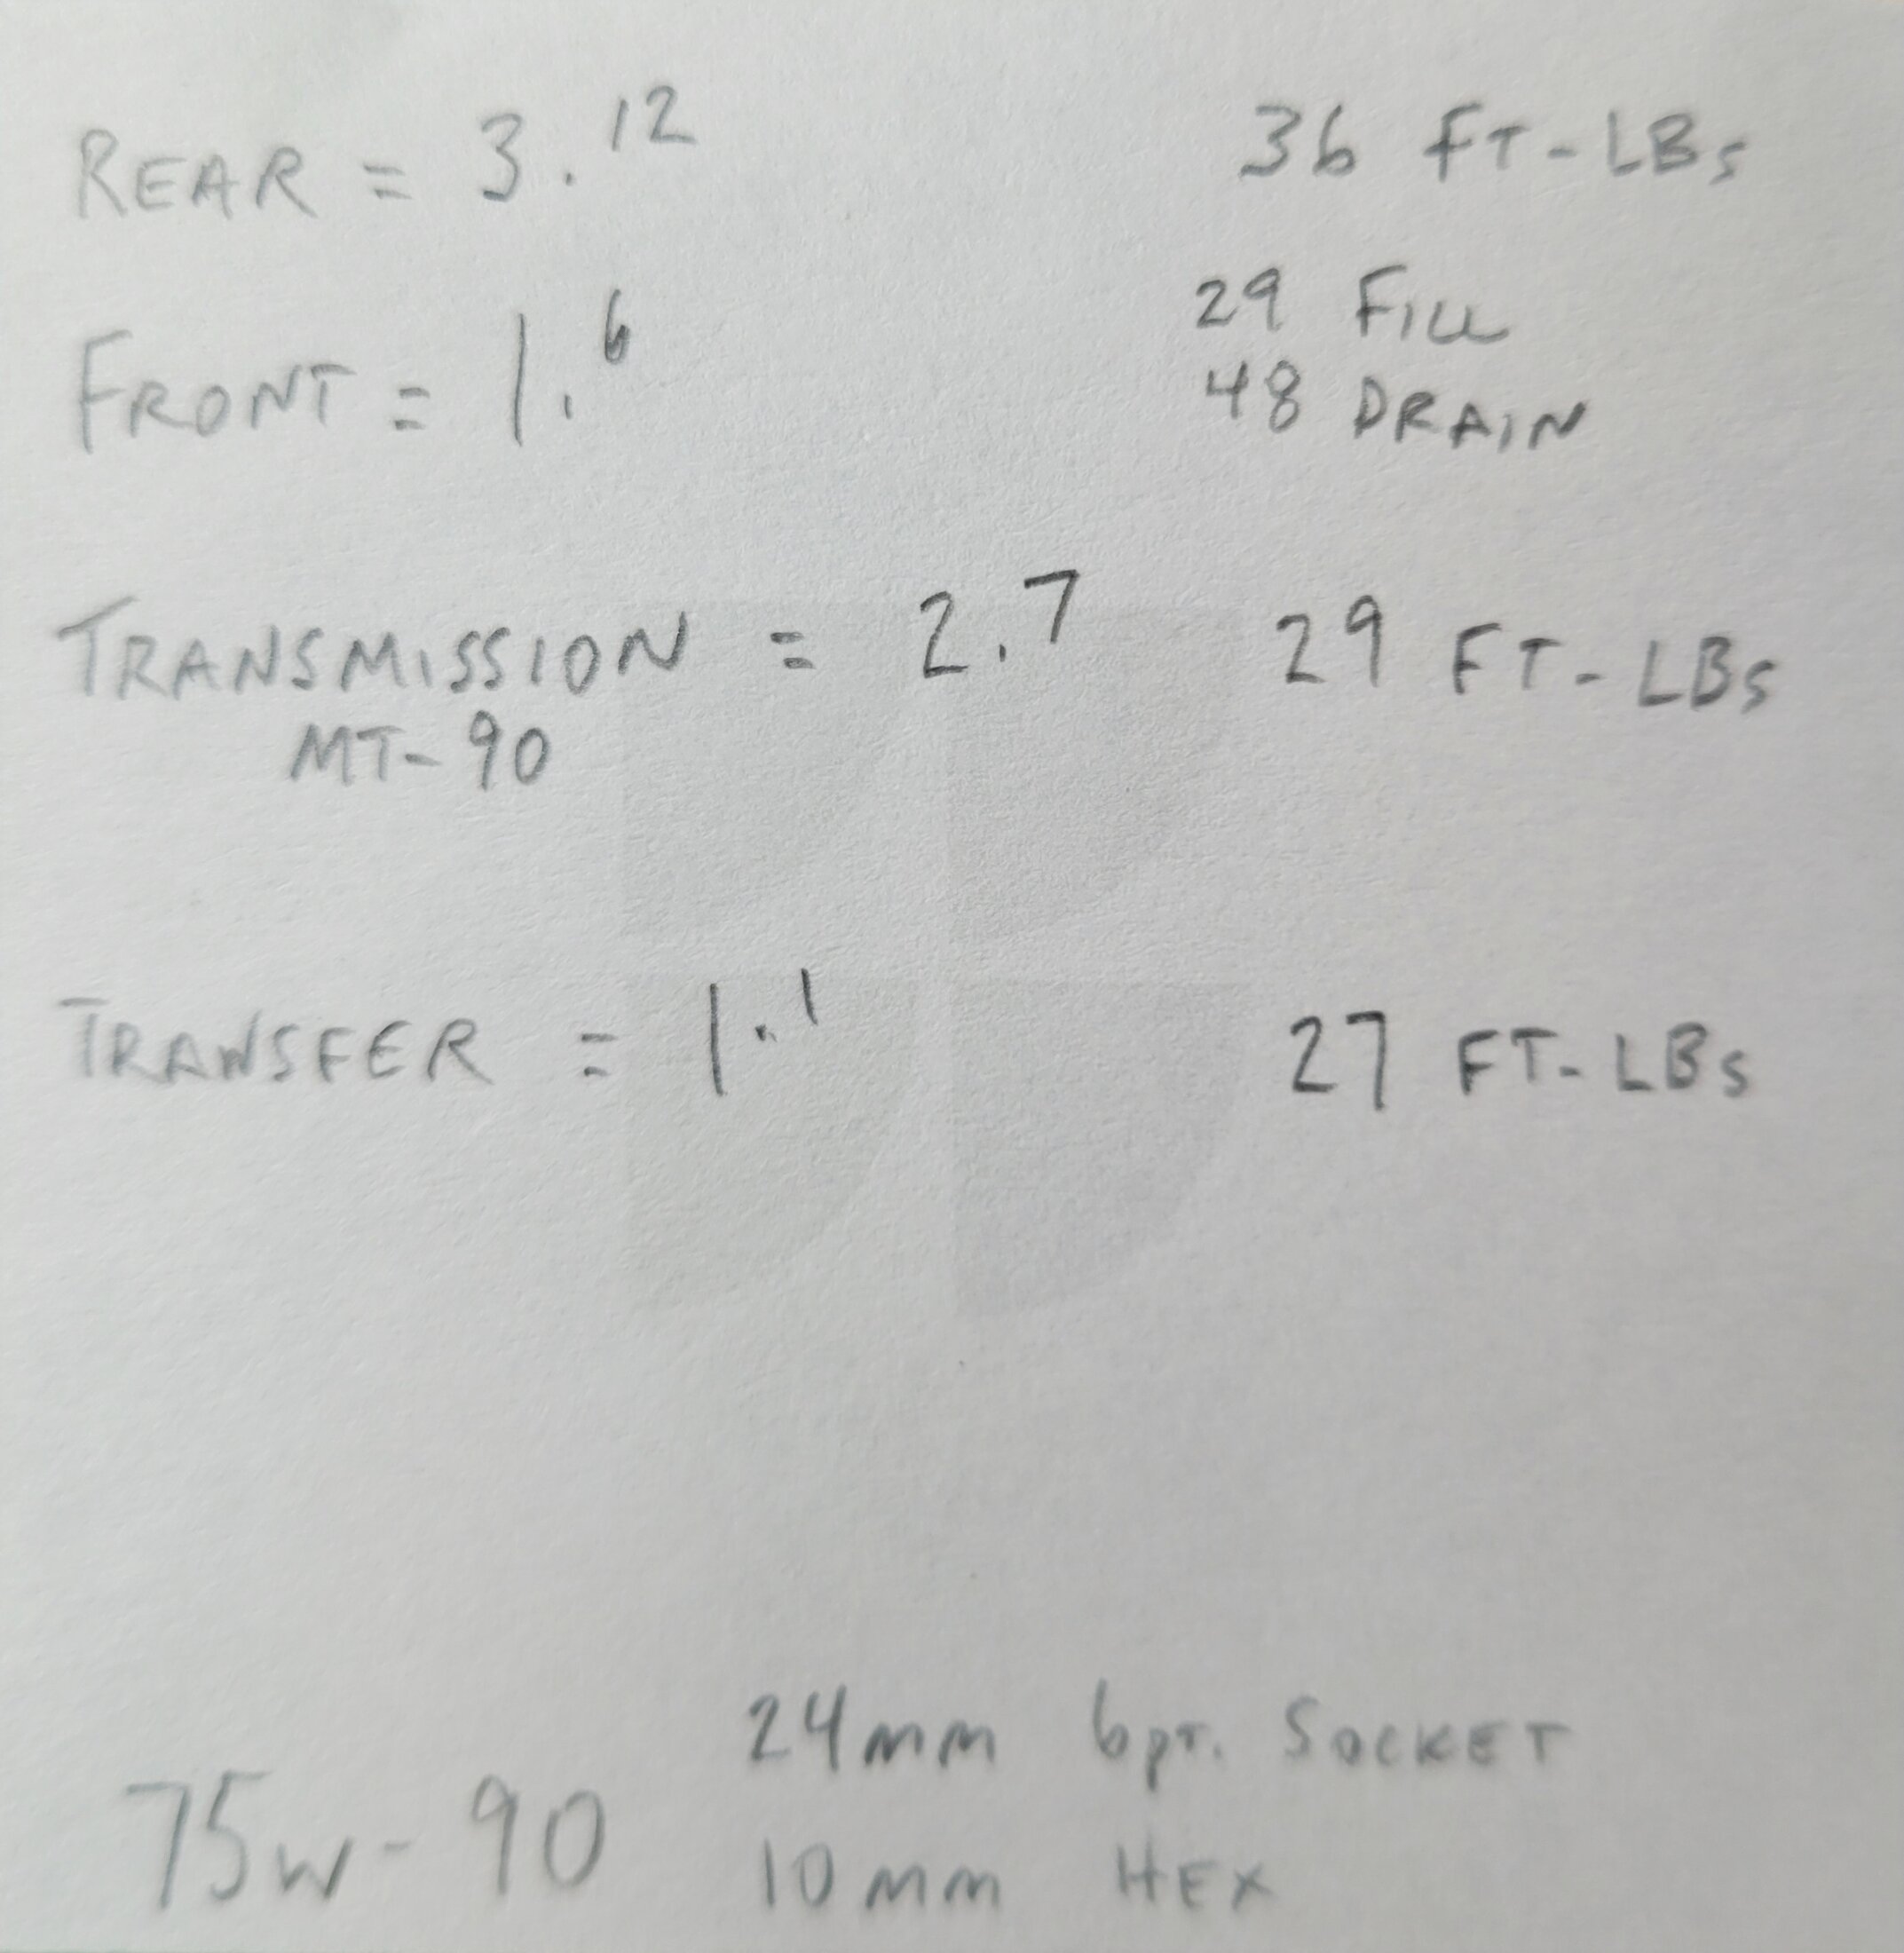 REAR = 3.12 36 FT-LBs
29 FILL
FRONT = 1.6
48 DRAIN
TRANSMISSION = 2.7 29 FT-LBs
MT-90
TRANSFER = 1.1 27 FT-LBs
24mm 6pt. SOCKET
75W-90
10mm HEX